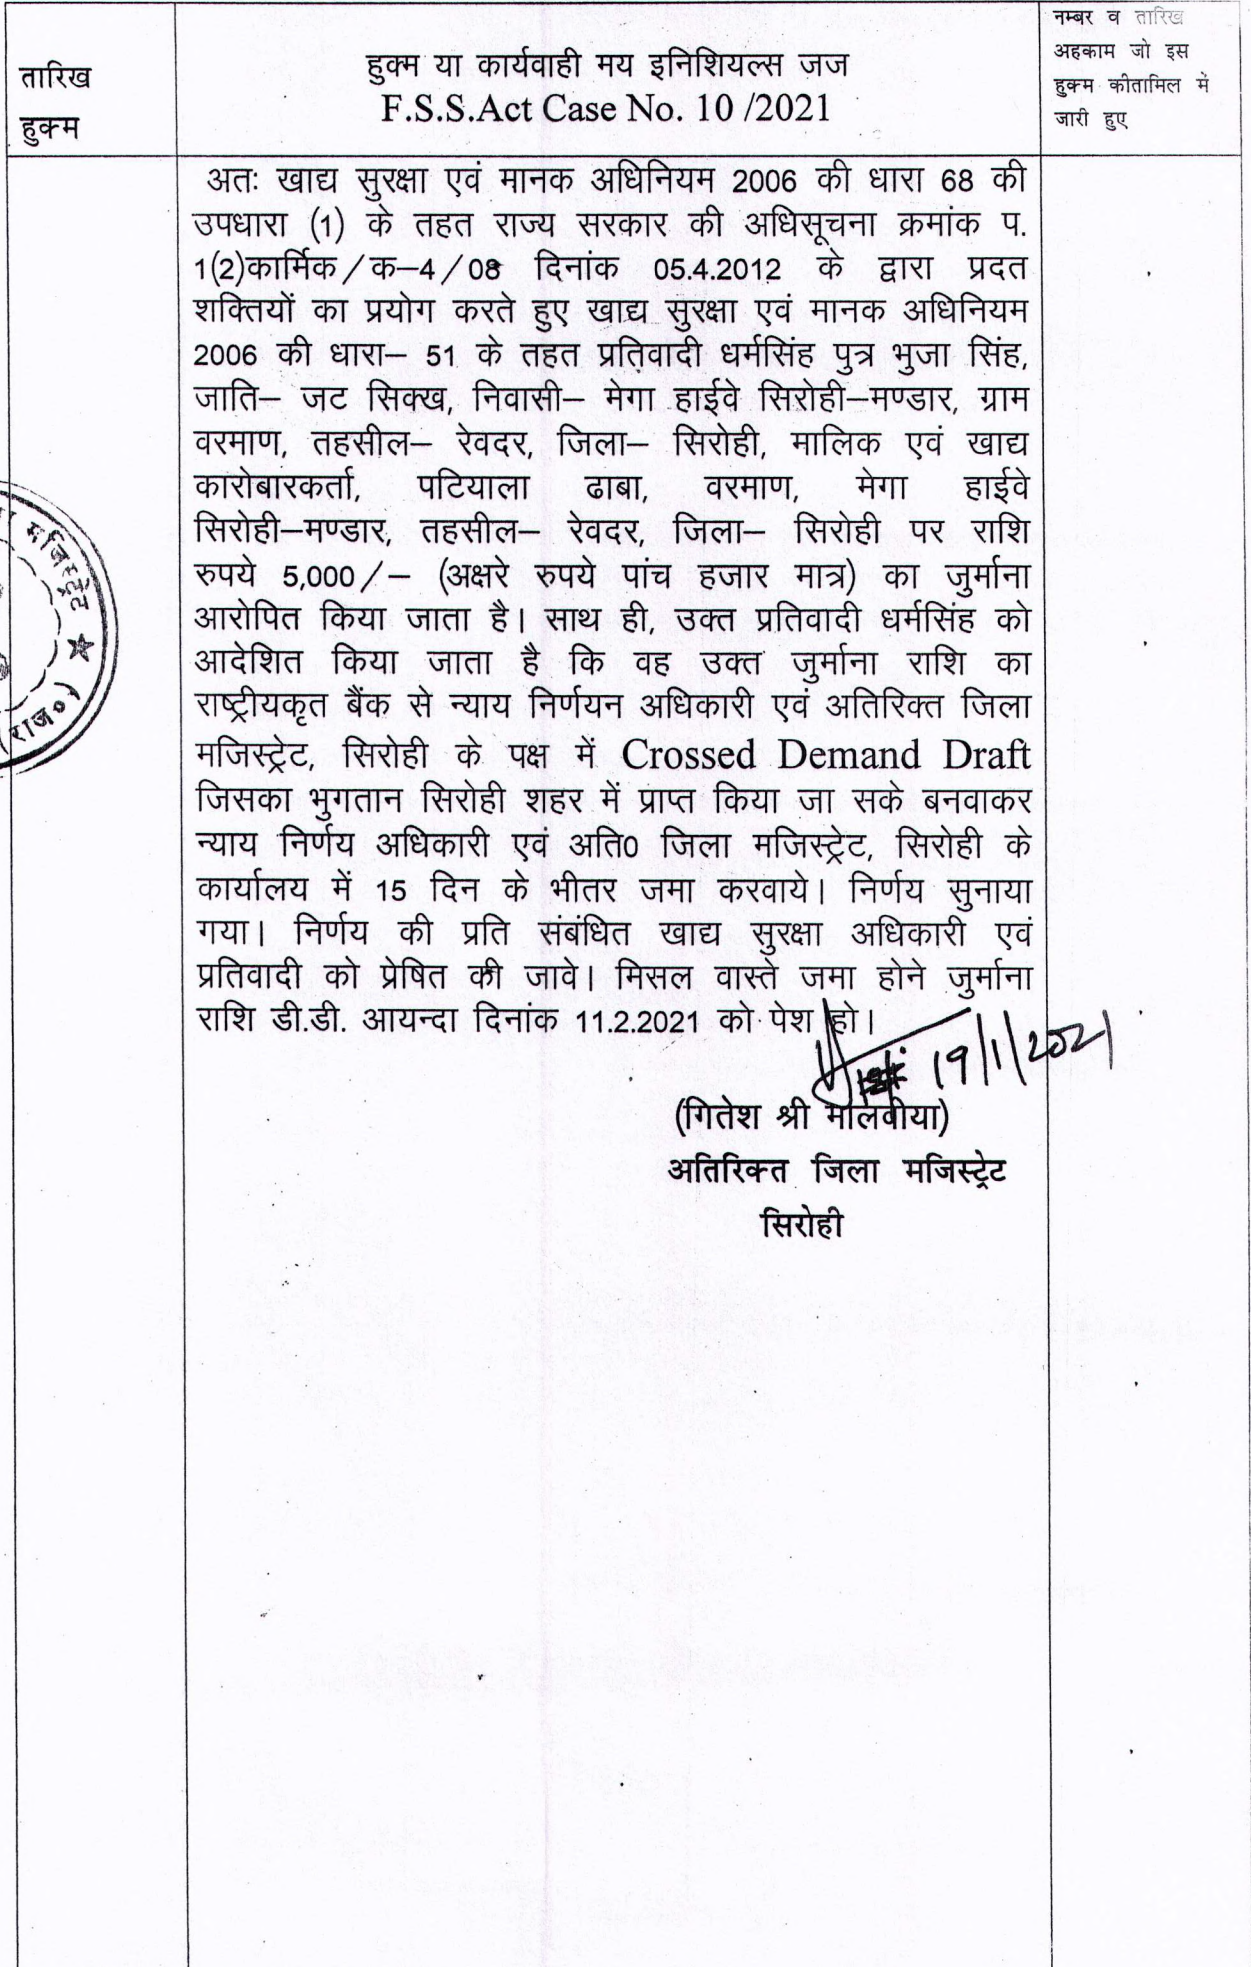 तारिख
हुक्म
हुक्म या कार्यवाही मय इनिशियल्स जज
F.S.S.Act Case No. 10 /2021
नम्बर व तारिख
अहकाम जो इस
हुक्म कीतामिल में
जारी हुए
अतः खाद्य सुरक्षा एवं मानक अधिनियम 2006 की धारा 68 की
उपधारा (1) के तहत राज्य सरकार की अधिसूचना क्रमांक प.
1(2)कार्मिक/क–4/08 दिनांक 05.4.2012 के द्वारा प्रदत
शक्तियों का प्रयोग करते हुए खाद्य सुरक्षा एवं मानक अधिनियम
2006 की धारा– 51 के तहत प्रतिवादी धर्मसिंह पुत्र भुजा सिंह,
जाति– जट सिक्ख, निवासी– मेगा हाईवे सिरोही–मण्डार, ग्राम
वरमाण, तहसील– रेवदर, जिला– सिरोही, मालिक एवं खाद्य
कारोबारकर्ता, पटियाला ढाबा, वरमाण, मेगा हाईवे
सिरोही–मण्डार, तहसील– रेवदर, जिला– सिरोही पर राशि
रुपये 5,000/– (अक्षरे रुपये पांच हजार मात्र) का जुर्माना
आरोपित किया जाता है। साथ ही, उक्त प्रतिवादी धर्मसिंह को
आदेशित किया जाता है कि वह उक्त जुर्माना राशि का
राष्ट्रीयकृत बैंक से न्याय निर्णयन अधिकारी एवं अतिरिक्त जिला
मजिस्ट्रेट, सिरोही के पक्ष में Crossed Demand Draft
जिसका भुगतान सिरोही शहर में प्राप्त किया जा सके बनवाकर
न्याय निर्णय अधिकारी एवं अति0 जिला मजिस्ट्रेट, सिरोही के
कार्यालय में 15 दिन के भीतर जमा करवाये। निर्णय सुनाया
गया। निर्णय की प्रति संबंधित खाद्य सुरक्षा अधिकारी एवं
प्रतिवादी को प्रेषित की जावे। मिसल वास्ते जमा होने जुर्माना
राशि डी.डी. आयन्दा दिनांक 11.2.2021 को पेश हो।
19/1/2021
(गितेश श्री मालवीया)
अतिरिक्त जिला मजिस्ट्रेट
सिरोही
मजिस्ट्रेट ★
(राज०)